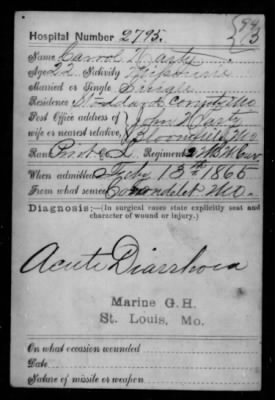 99
13
Hospital Number 2795.
Name Carrol H. Casty
Age 22 Nativity
Married or Single Single
Residence Stoddard County Mo
Post Office address of John H Casty
wife or nearest relative, Bloomfield Mo
Rank Priv't Co. L Regiment 2 M S M Cav.
When admitted July 13th 1865
From what source Carondelet Mo.
Diagnosis:—(In surgical cases state explicitly seat and
character of wound or injury.)
Acute Diarrhoea
Marine G. H.
St. Louis, Mo.
On what occasion wounded
Date
Nature of missile or weapon